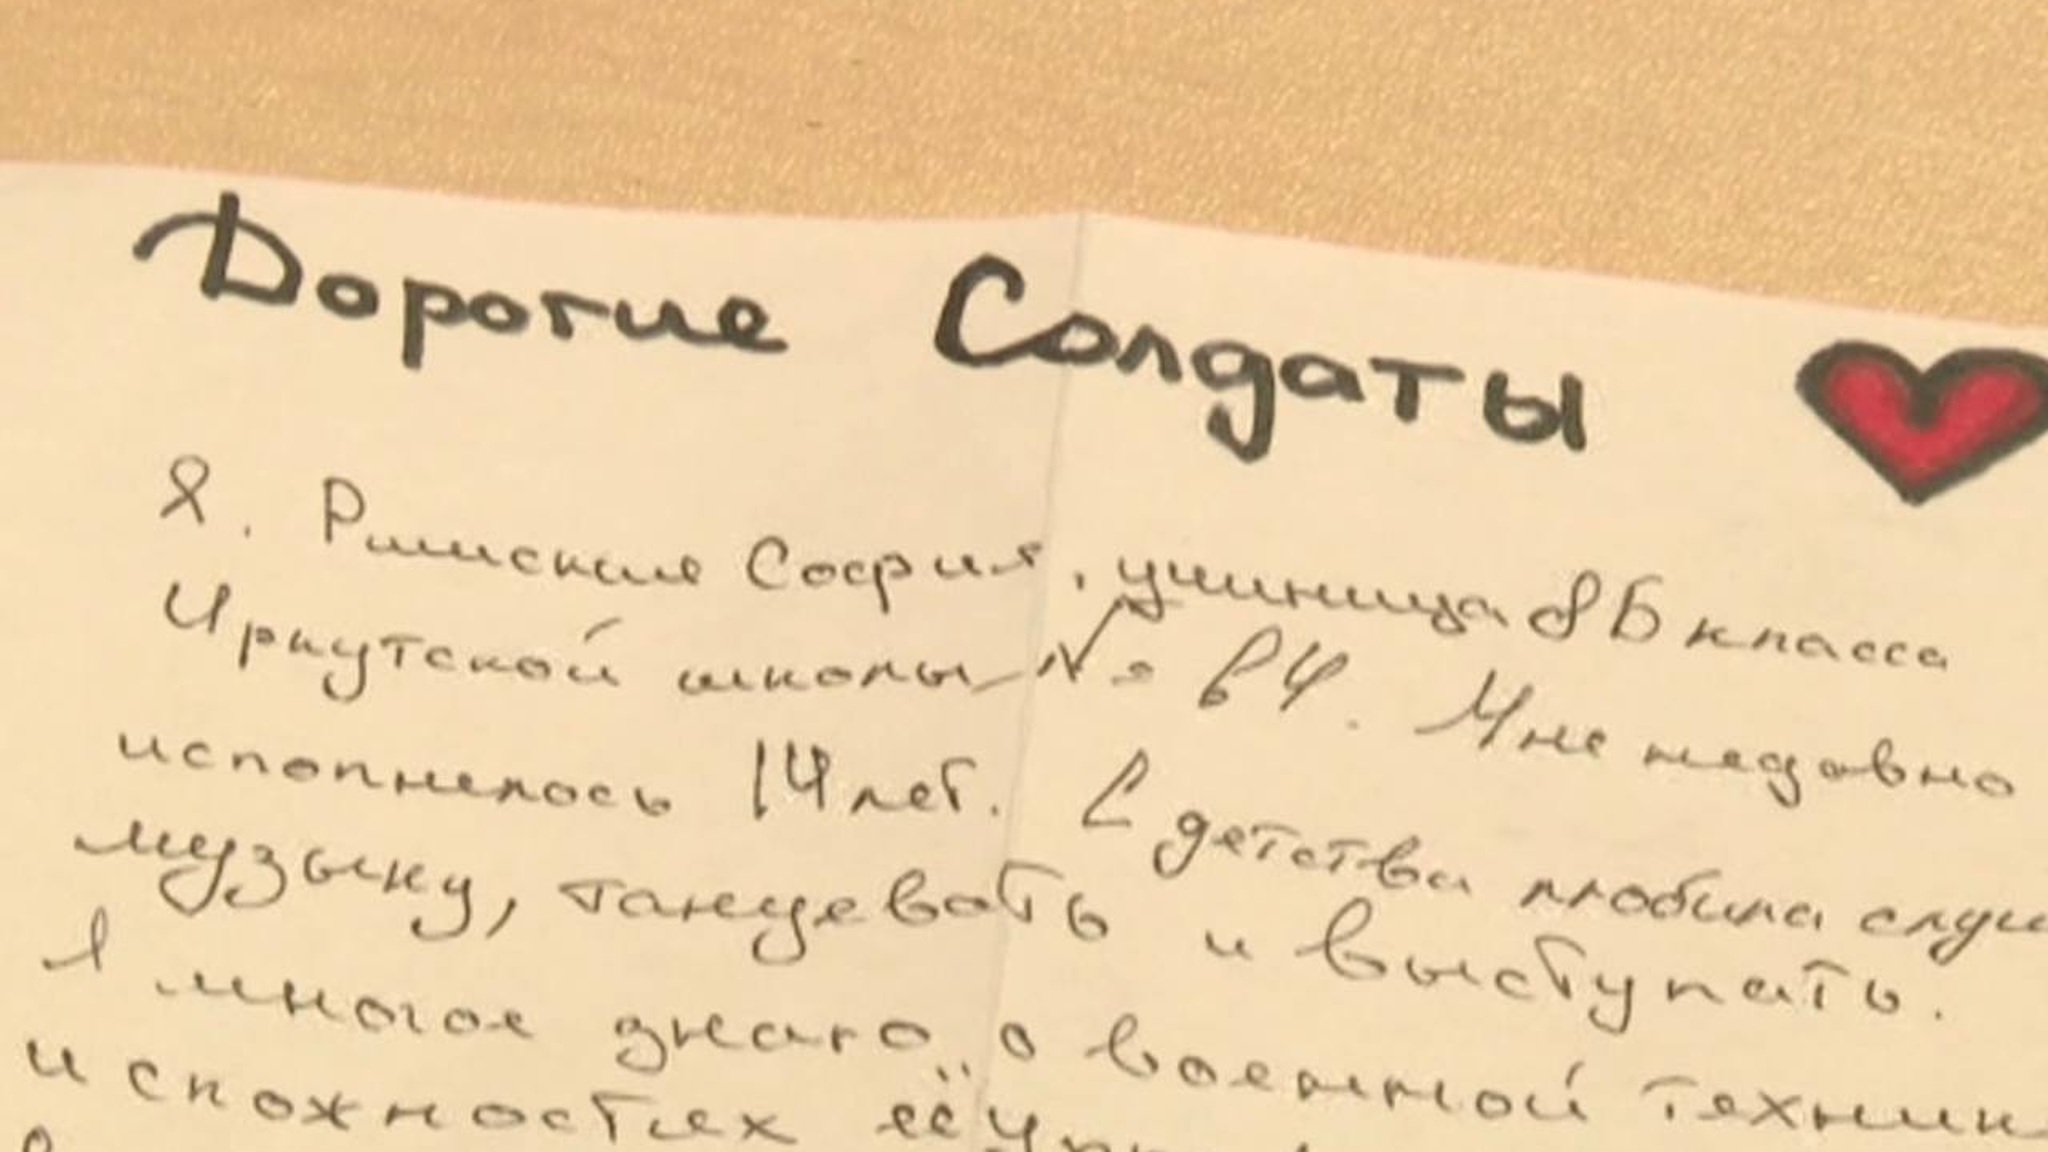 Дорогие Солдаты
Я. Римская София, ученица 8 Б класса
Иркутской школы № 64. Мне недавно
исполнилось 14 лет. С детства любила слуш
музыку, танцевать и выступать.
Я многое знаю о военной техник
и сложностях её